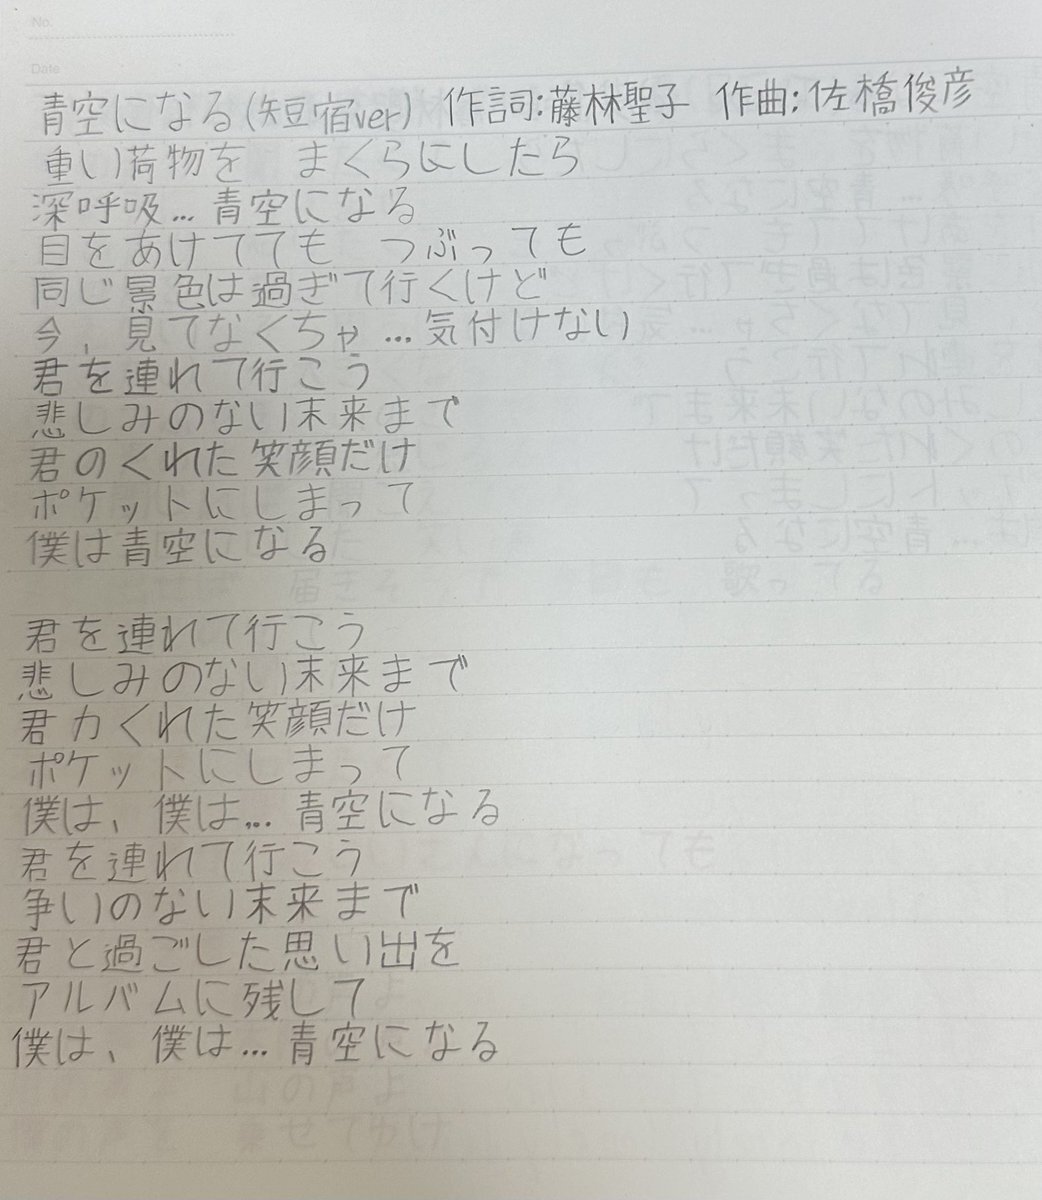 No.
Date
青空になる(短宿ver) 作詞:藤林聖子 作曲;佐橋俊彦
重い荷物を まくらにしたら
深呼吸...青空になる
目をあけてても つぶっても
同じ景色は過ぎて行くけど
今、見てなくちゃ...気付けない
君を連れて行こう
悲しみのない未来まで
君のくれた笑顔だけ
ポケットにしまって
僕は青空になる
君を連れて行こう
悲しみのない未来まで
君カくれた笑顔だけ
ポケットにしまって
僕は、僕は...青空になる
君を連れて行こう
争いのない未来まで
君と過ごした思い出を
アルバムに残して
僕は、僕は...青空になる